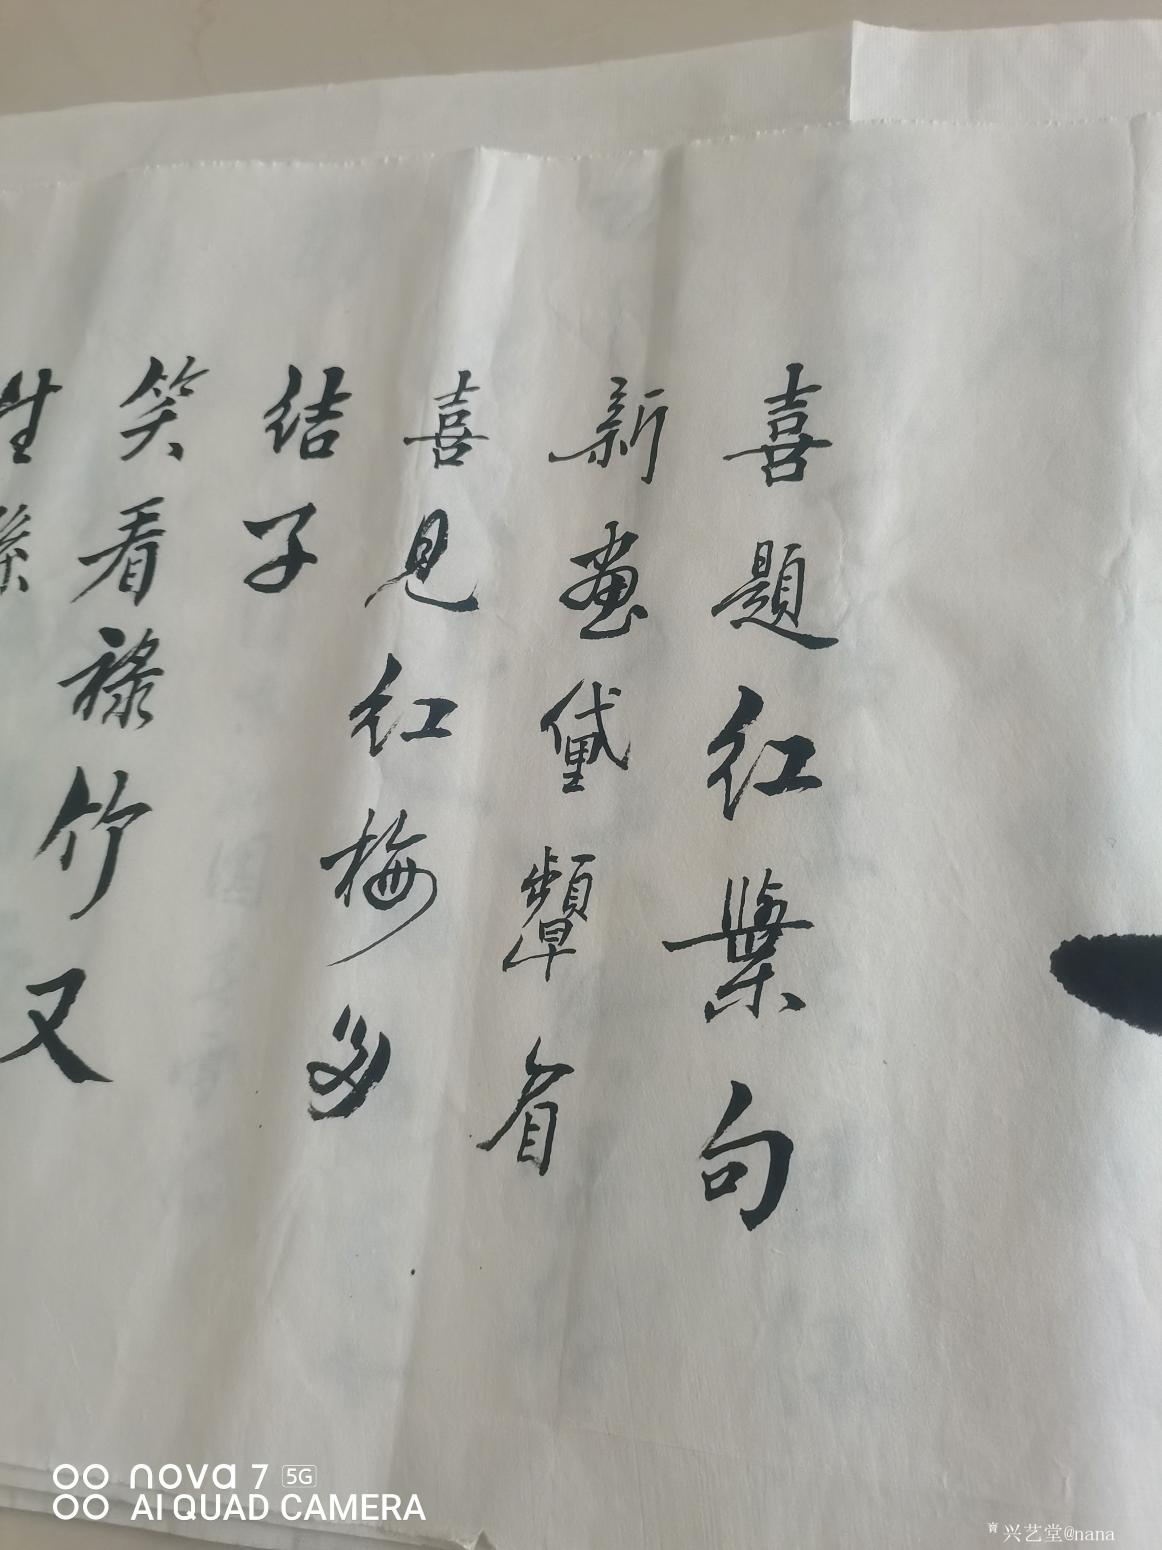 喜題红葉句
新畫黛顰眉
喜見红梅多
结子
笑看祿竹又
生孫
nova 7 5G
AI QUAD CAMERA
兴艺堂@nana